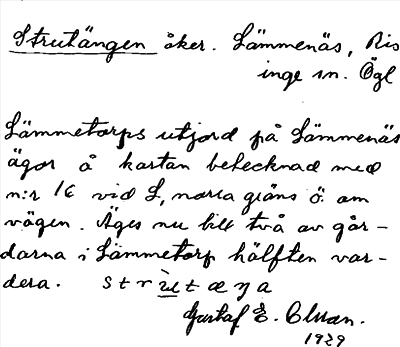 Strutängen åker. Lämmenäs, Ris
inge sn. Ögl
Lämmetorps utjord på Lämmenäs
ägor å kartan betecknad med
n:r 16 vid L, norra gräns ö. om
vägen. Äges nu till två av går-
darna i Lämmetorp hälften var-
dera. strùtæŋa
Gustaf E.
1929